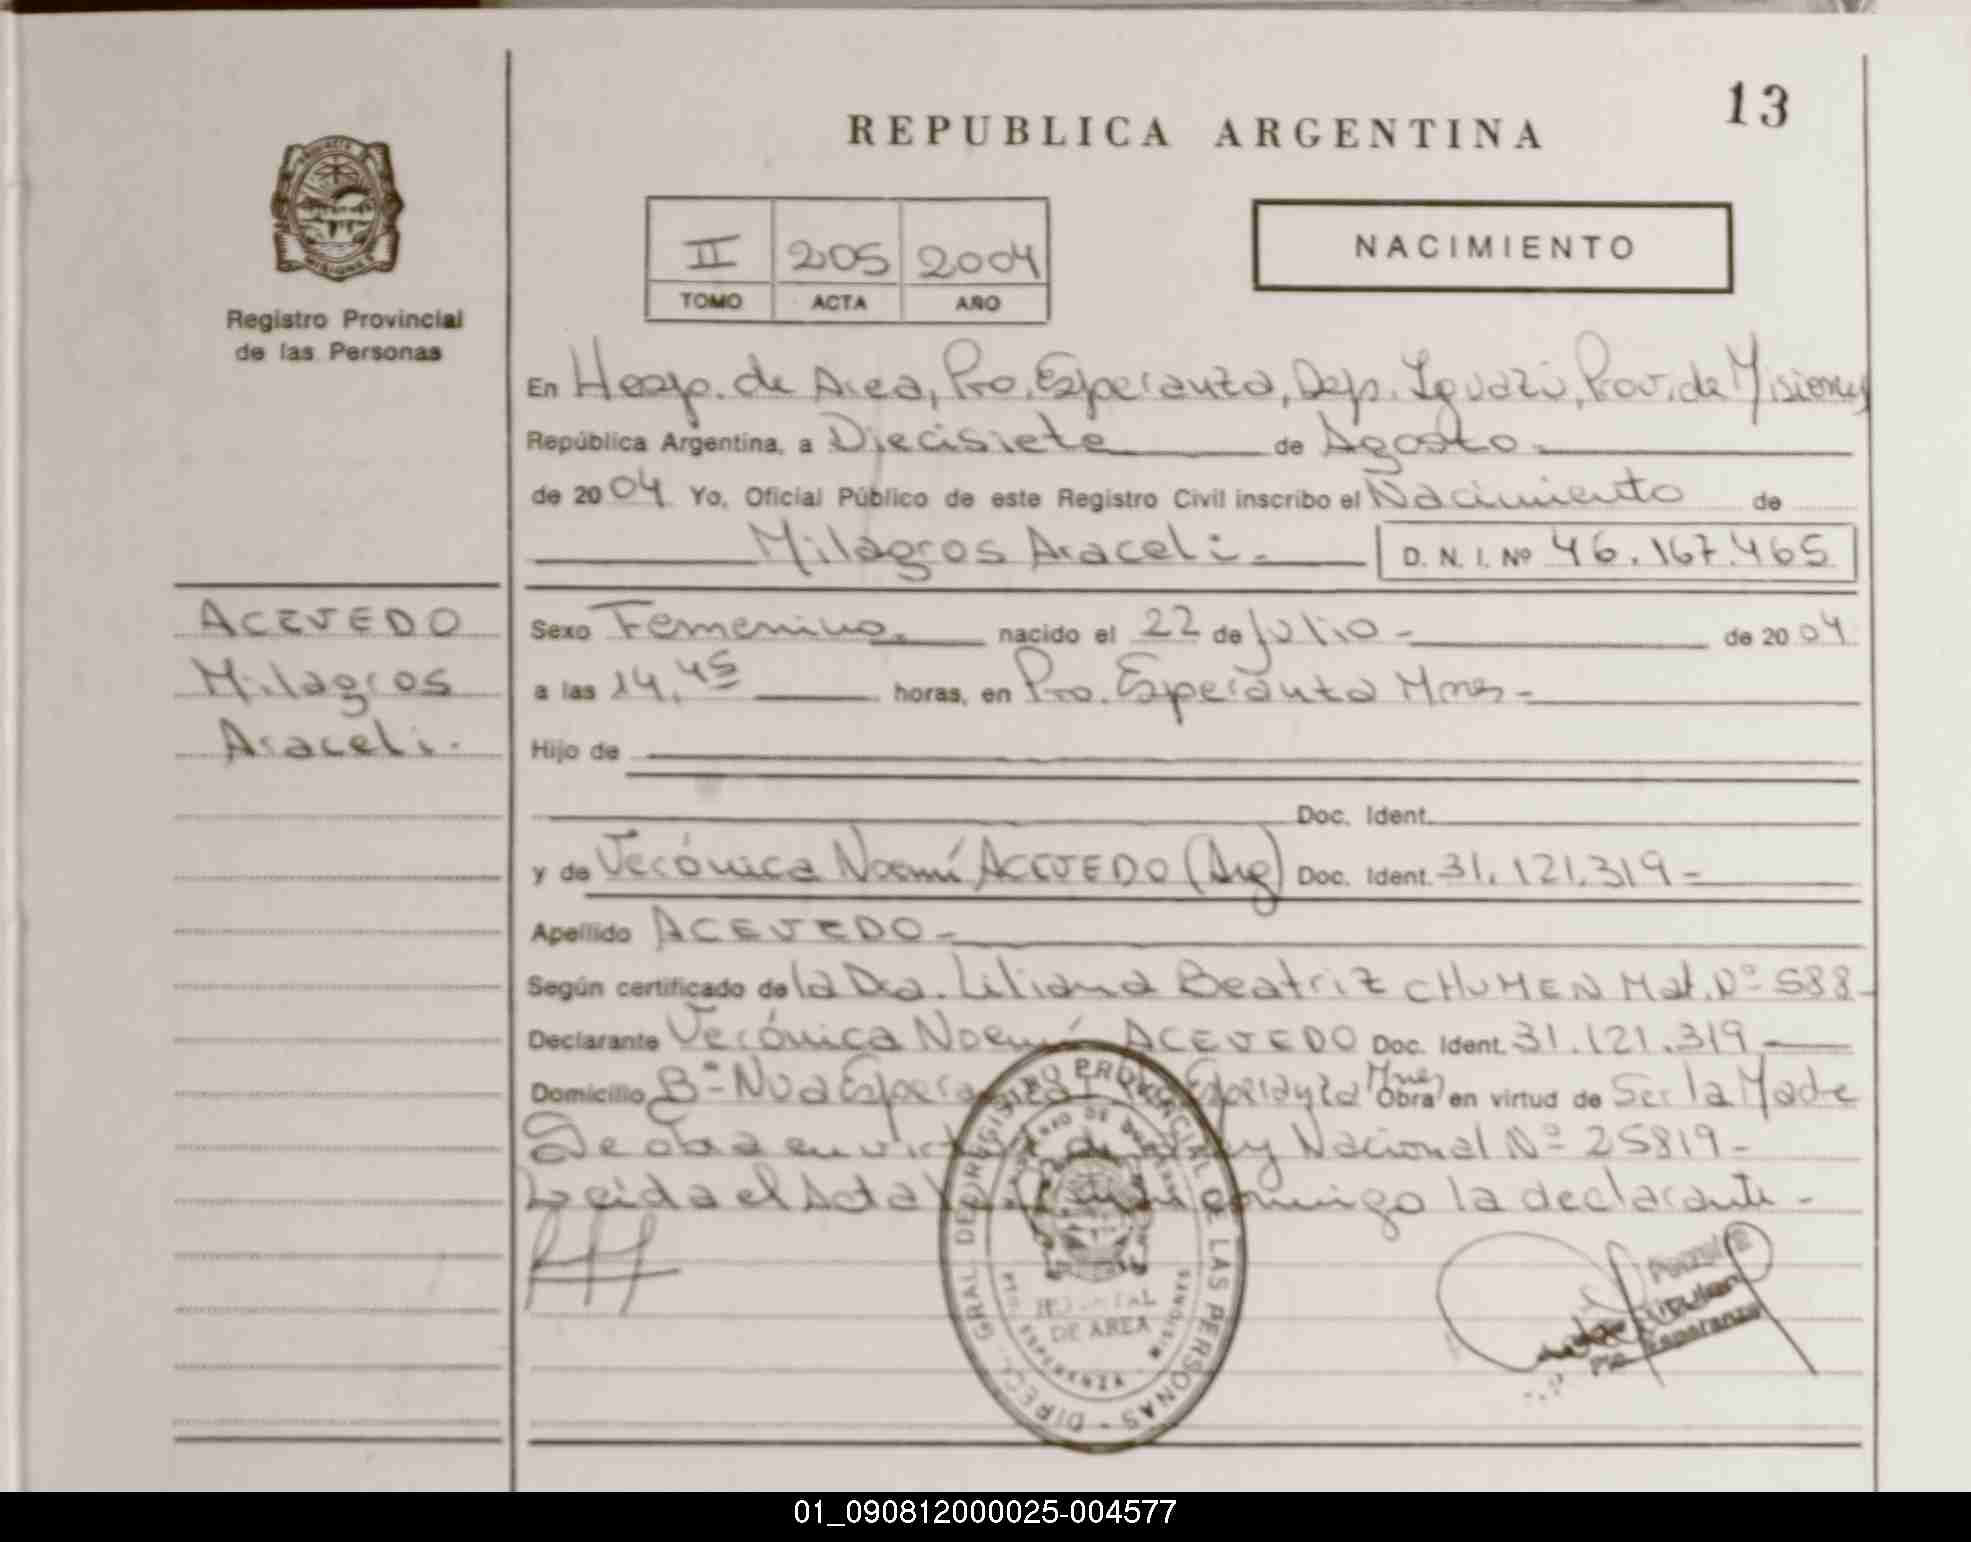 13
REPUBLICA ARGENTINA
MISIONES
Registro Provincial
de las Personas
II 205 2004
TOMO ACTA AÑO
NACIMIENTO
En Hosp. de Area, Pto. Esperanza, Dep. Iguazú, Prov. de Misiones
República Argentina, a Diecisiete de Agosto.-
de 2004 Yo, Oficial Público de este Registro Civil inscribo el Nacimiento de
Milagros Araceli.- D. N. I. Nº 46.167.465
ACEVEDO
Milagros
Araceli.-
Sexo Femenino.- nacido el 22 de Julio - de 2004
a las 14,45 horas, en Pto. Esperanza Mnes-
Hijo de
Doc. Ident.
y de Verónica Noemí ACEVEDO (Arg) Doc. Ident. 31.121.319-
Apellido ACEVEDO-
Según certificado de la Dra. Liliana Beatriz CHUMEN Mat. Nº 588-
Declarante Verónica Noemí ACEVEDO Doc. Ident. 31.121.319-
Domicilio Bº- Nva Esperanza Esperanza Mnes Obra en virtud de Ser la Madre
Se obra en virt Ley Nacional Nº 25819-
Leida el Acta conmigo la declarante-
DIREC. GRAL. DEL REGISTRO PROVINCIAL DE LAS PERSONAS
HOSPITAL
DE AREA
PTO. ESPERANZA - MISIONES
Pto. Esperanza
01_090812000025-004577